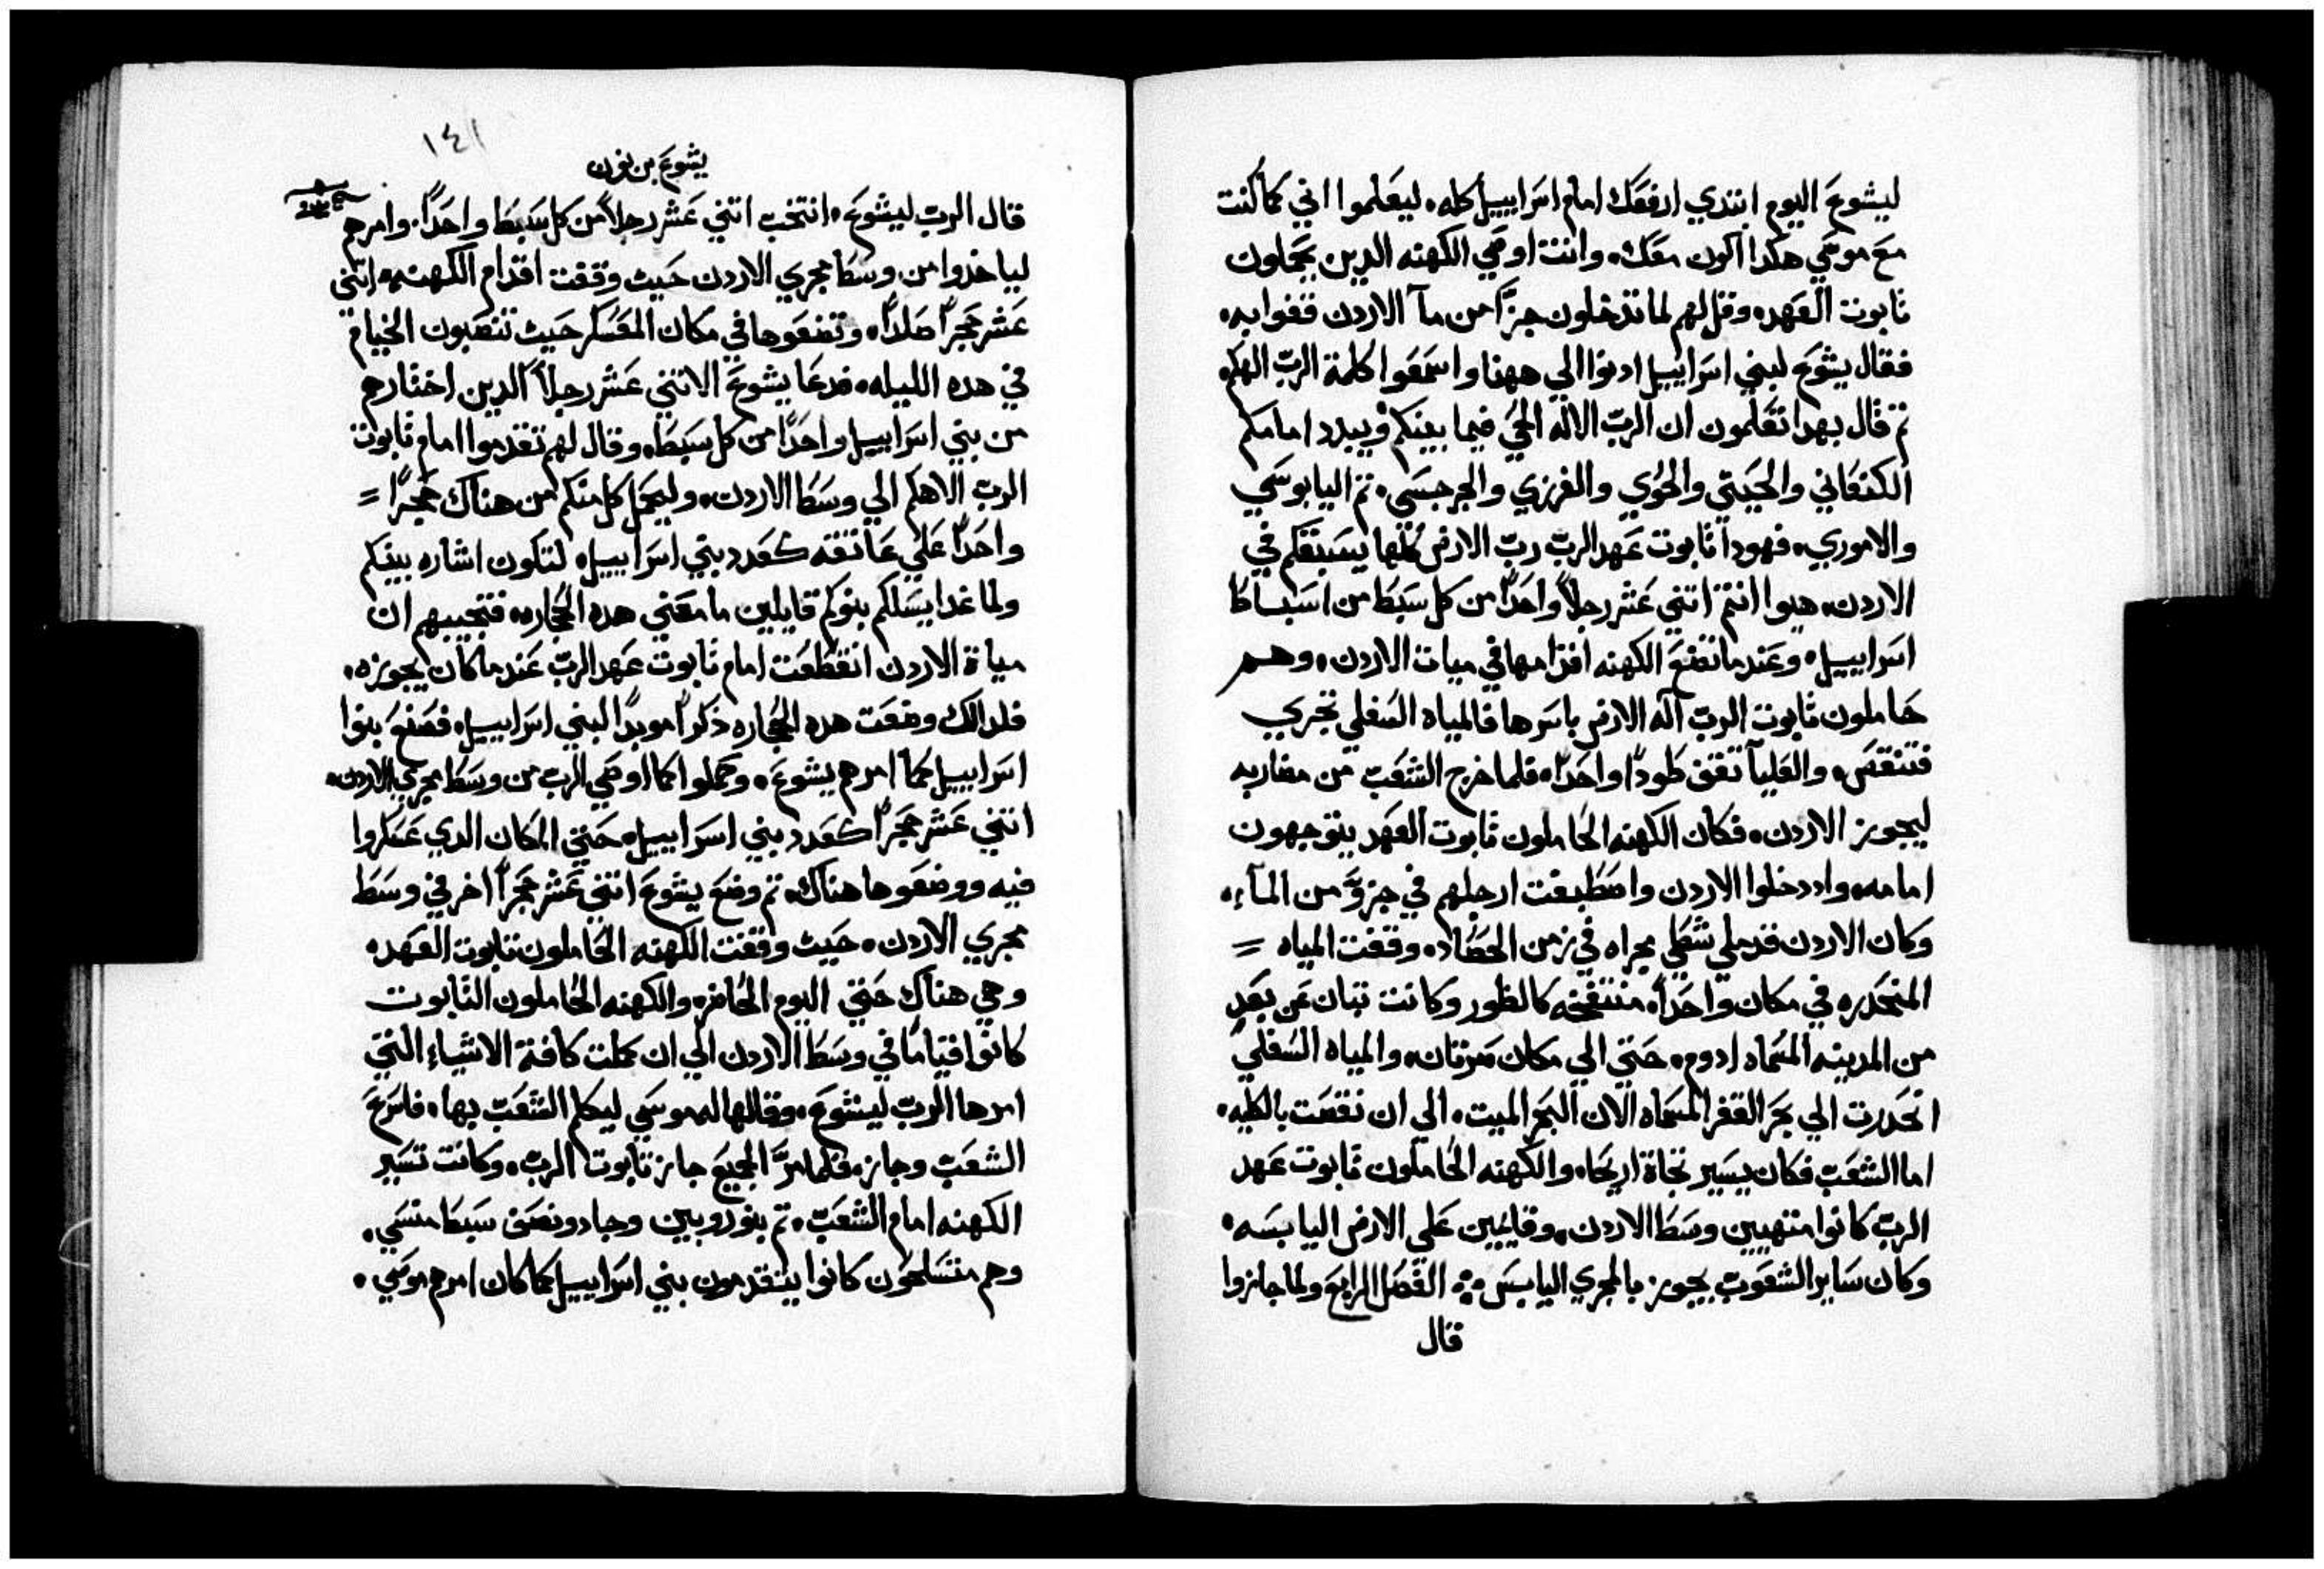 ليشوع اليوم ابتدي ارفعك امام اسراييل كله، ليعلموا اني كما كنت
مع موسي هكدا اكون معك، وانت اوصي الكهنه الدين يحملون
تابوت العهد، وقل لهم لما تدخلون جزًا من مآ الاردن قفوا به،
فقال يشوع لبني اسراييل ادنوا الي ههنا واسمعوا كلمة الرب الهكم،
تم قال بهدا تعلمون ان الرب الاله الحي فيما بينكم ويبدد امامكم
الكنعاني والحيتي والحوي والفرزي والجرجسي، تم اليابوسي
والاموري، فهودا تابوت عهد الرب رب الارض كلها يسبقكم في
الاردن، هيوا انتم اتني عشر رجلاً واحدًا من كل سبط من اسباط
اسراييل، وعندما تضع الكهنه اقدامها في ميات الاردن، وهم
حاملون تابوت الرب اله الارض باسرها فالمياه السفلي تجري
فتنقص، والعليآ تقف طودًا واحدًا، فلما خرج الشعب من مضاربه
ليجوز الاردن، فكان الكهنه الحاملون تابوت العهد يتوجهون
امامه، واد دخلوا الاردن واصطبغت ارجلهم في جزوً من المآء،
وكان الاردن قد ملي شطي مجراه في زمن الحصاد، وقفت المياه =
المنحدره في مكان واحدًا، منتفخه كالطور وكانت تبان عن بعدٍ
من المدينه المسماه ادوم، حتي الي مكان صرتان، والمياه السفلي
انحدرت الي بحر القفر المسماه الان البحر الميت، الي ان نقصت بالكليه،
اما الشعب فكان يسير تجاة اريحا، والكهنه الحاملون تابوت عهد
الرب كانوا متهيين وسط الاردن، وقايمين علي الارض اليابسه،
وكان ساير الشعوب يجوز بالمجري اليابس، الفصل الرابع ولما جازوا
قال
١٤١
يشوع بن نون
قال الرب ليشوع، انتخب اتني عشر رجلاً من كل سبط واحدًا، وامرهم
لياخدوا من وسط مجري الاردن حيت وقفت اقدام الكهنه، اتني
عشر حجرًا صلدًا، وتضعوها في مكان المعسكر حيت تنصبون الخيام
في هده الليله، فدعا يشوع الاتني عشر رجلاً الدين اختارهم
من بني اسراييل واحدًا من كل سبط، وقال لهم تقدموا امام تابوت
الرب الاهكم الي وسط الاردن، وليحمل كل منكم من هناك حجرًا =
واحدًا علي عاتقه كعدد بني اسراييل، لتكون اشاره بينكم
ولما غدا يسلكم بنوكم قايلين ما معني هده الحجاره، فتجيبهم ان
مياة الاردن انقطعت امام تابوت عهد الرب عندما كان يجوزه،
فلدالك وضعت هده الحجاره ذكرًا موبدًا لبني اسراييل، فصنع بنوا
اسراييل كما امرهم يشوع، وحملوا كما اوصي الرب من وسط مجري الاردن،
اتني عشر حجرًا كعدد بني اسراييل، حتي المكان الدي عسكروا
فيه ووضعوها هناك، تم وضع يشوع اتني عشر حجرًا اخر في وسط
مجري الاردن، حيت وقفت الكهنه الحاملون تابوت العهد،
وهي هناك حتي اليوم الحاضر، والكهنه الحاملون التابوت
كانوا قيامًا في وسط الاردن الي ان كملت كافة الاشياء التي
امرها الرب ليشوع، وقالها له موسي ليكلم الشعب بها، فاسرع
الشعب وجاز، فلما مرَّ الجميع جاز تابوت الرب، وكانت تسير
الكهنه امام الشعب، تم بنو روبين وجاد ونصف سبط منسي،
وهم متسلحون كانوا يتقدمون بني اسراييل كما كان امرهم موسي،